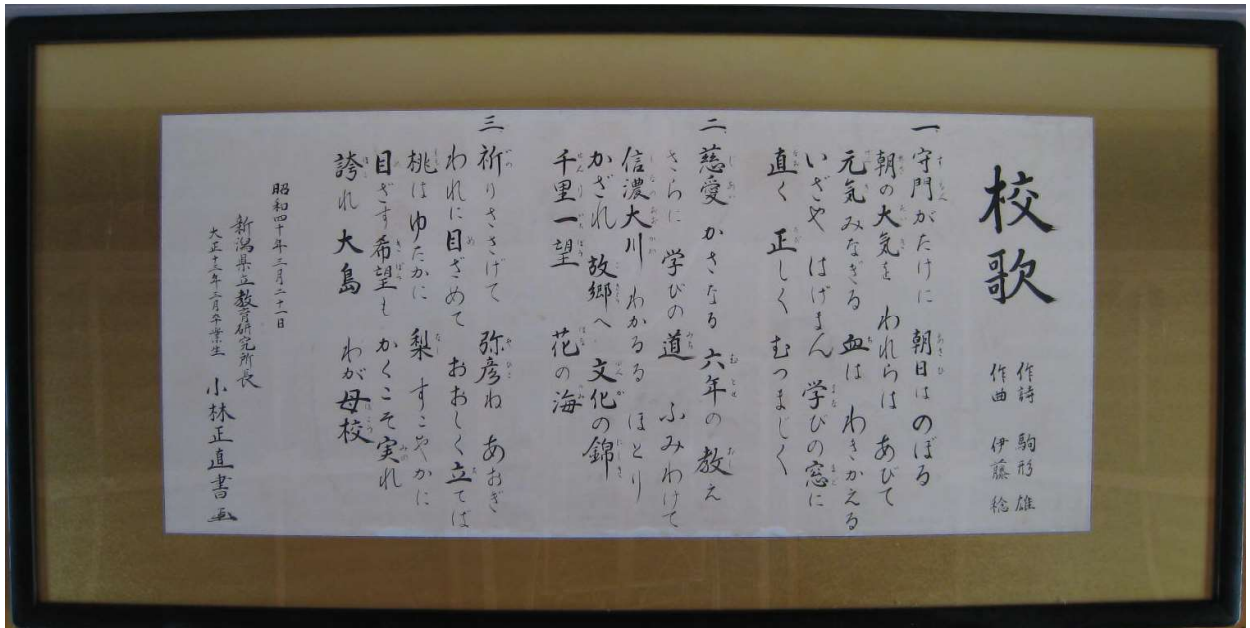 校歌
作詩 駒形 雄
作曲 伊藤 稔
一 守門がたけに 朝日は のぼる
朝の大気を われらは あびて
元気みなぎる 血は わきかえる
いざや はげまん 学びの窓に
直く 正しく むつまじく
二 慈愛 かさなる 六年の 教え
さらに 学びの 道 ふみわけて
信濃大川 わかるる ほとり
かざれ 故郷へ 文化の錦
千里一望 花の海
三 祈りささげて 弥彦ね あおぎ
われに目ざめて おおしく立てば
桃は ゆたかに 梨 すこやかに
目ざす希望も かくこそ実れ
誇れ 大島 わが母校
昭和四十年三月二十二日
新潟県立教育研究所長
大正十三年三月卒業生 小林正直書